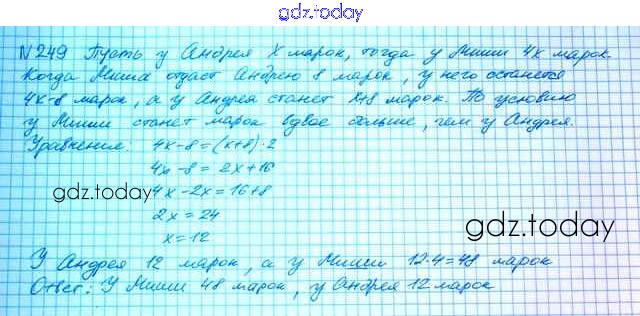 gdz.today
№249 Пусть у Андрея x марок, тогда у Миши 4x марок.
Когда Миша отдаст Андрею 8 марок, у него останется
4x-8 марок, а у Андрея станет x+8 марок. По условию
у Миши станет марок вдвое больше, чем у Андрея.
Уравнение: 4x-8=(x+8)·2
4x-8=2x+16
4x-2x=16+8
gdz.today
2x=24
gdz.today
x=12
У Андрея 12 марок, а у Миши 12·4=48 марок
Ответ: У Миши 48 марок, у Андрея 12 марок